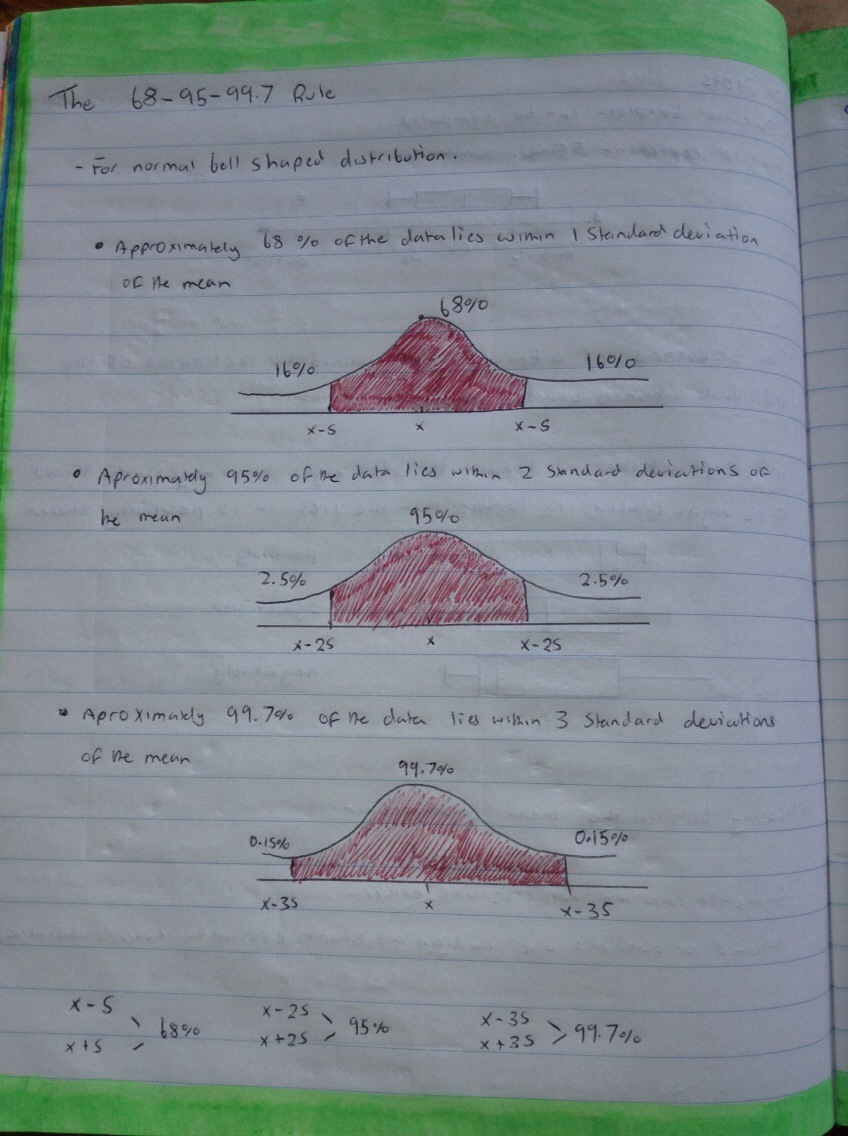 The 68-95-99.7 Rule
- For normal bell shaped distribution.
• Approximately 68 % of the data lies within 1 Standard deviation
of the mean
68%
16% 16%
x-S x x-S
• Aproximately 95% of the data lies within 2 Standard deviations of
the mean
95%
2.5% 2.5%
x-2S x x-2S
• Aproximately 99.7% of the data lies within 3 Standard deviations
of the mean
99.7%
0.15% 0.15%
x-3S x x-3S
x-S
x+S
68%
x-2S
x+2S
95%
x-3S
x+3S
99.7%